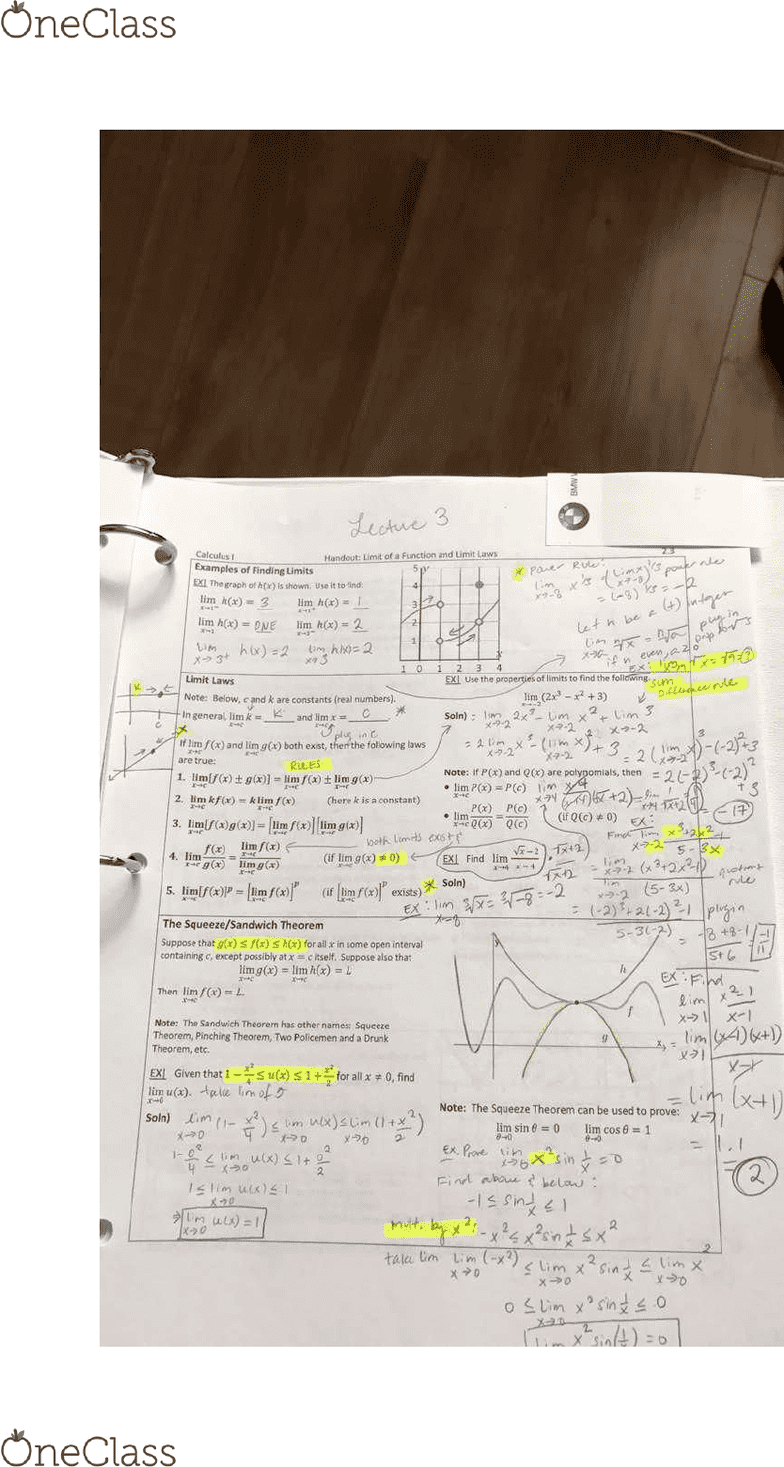 OneClass
BMW
Lecture 3
Calculus I
Handout: Limit of a Function and Limit Laws
2.3
Examples of Finding Limits
EX) The graph of h(x) is shown. Use it to find:
lim x→1⁻ h(x) = 3
lim x→1⁺ h(x) = 1
lim x→1 h(x) = DNE
lim h(x) = 2
lim x→3⁺ h(x) = 2
lim x→3 h(x) = 2
5 y
4
3
2
1
1 0 1 2 3 4
* Power Rule:
lim x→-8 x^1/3 = (lim x→-8 x)^1/3 power rule
= (-8)^1/3 = -2
Let n be a (+) integer
plug in
if n even, a ≥ 0
Limit Laws
Note: Below, c and k are constants (real numbers).
In general, lim x→c k = k and lim x→c x = c *
plug in c
If lim x→c f(x) and lim x→c g(x) both exist, then the following laws
are true:
RULES
1. lim x→c [f(x) ± g(x)] = lim x→c f(x) ± lim x→c g(x)
2. lim x→c kf(x) = k lim x→c f(x) (here k is a constant)
3. lim x→c [f(x)g(x)] = [lim x→c f(x)][lim x→c g(x)]
both limits exist
4. lim x→c f(x)/g(x) = lim x→c f(x) / lim x→c g(x) (if lim x→c g(x) ≠ 0)
5. lim x→c [f(x)]^p = [lim x→c f(x)]^p (if [lim x→c f(x)]^p exists)
* EX: lim x→-8 ∛x = ∛-8 = -2
EX) Use the properties of limits to find the following:
sum difference rule
lim x→-2 (2x³ − x² + 3)
Soln) : lim x→-2 2x³ - lim x→-2 x² + lim x→-2 3
= 2 lim x→-2 x³ - (lim x→-2 x)² + 3 = 2(lim x→-2 x)³ - (-2)² + 3
= 2(-2)³ - (-2)² + 3
= -17
Note: If P(x) and Q(x) are polynomials, then
• lim x→c P(x) = P(c)
• lim x→c P(x)/Q(x) = P(c)/Q(c) (if Q(c) ≠ 0)
EX:
Find lim x→-2 x³+2x²-1 / 5-3x
EX) Find lim x→4 √x−2 / x−4 · √x+2 / √x+2
Soln)
= lim x→-2 (x³+2x²-1) / lim x→-2 (5-3x)
quotient rule
= (-2)³+2(-2)²-1 / 5-3(-2)
plug in
= -8+8-1 / 5+6 = -1/11
The Squeeze/Sandwich Theorem
Suppose that g(x) ≤ f(x) ≤ h(x) for all x in some open interval
containing c, except possibly at x = c itself. Suppose also that
lim x→c g(x) = lim x→c h(x) = L
Then lim x→c f(x) = L.
Note: The Sandwich Theorem has other names: Squeeze
Theorem, Pinching Theorem, Two Policemen and a Drunk
Theorem, etc.
y
h
f
g
x
EX: Find
lim x→1 x²-1 / x-1
= lim x→1 (x-1)(x+1) / x-1
= lim x→1 (x+1)
= 1+1
= 2
EX) Given that 1 − x²/4 ≤ u(x) ≤ 1 + x²/2 for all x ≠ 0, find
lim x→0 u(x). take lim of 3
Soln) lim x→0 (1 - x²/4) ≤ lim x→0 u(x) ≤ lim x→0 (1 + x²/2)
1 - 0²/4 ≤ lim x→0 u(x) ≤ 1 + 0²/2
1 ≤ lim x→0 u(x) ≤ 1
⇒ lim x→0 u(x) = 1
Note: The Squeeze Theorem can be used to prove:
lim θ→0 sin θ = 0 lim θ→0 cos θ = 1
Ex. Prove lim x→0 x² sin 1/x = 0
Find above & below:
-1 ≤ sin 1/x ≤ 1
mult. by x²: -x² ≤ x² sin 1/x ≤ x²
2
take lim lim x→0 (-x²) ≤ lim x→0 x² sin 1/x ≤ lim x→0 x
0 ≤ lim x→0 x² sin 1/x ≤ 0
lim x² sin(1/x) = 0
OneClass